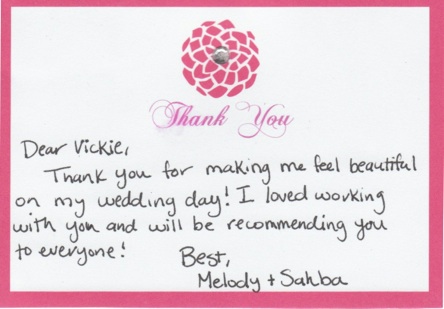 Thank You
Dear Vickie,
Thank you for making me feel beautiful
on my wedding day! I loved working
with you and will be recommending you
to everyone!
Best,
Melody + Sahba